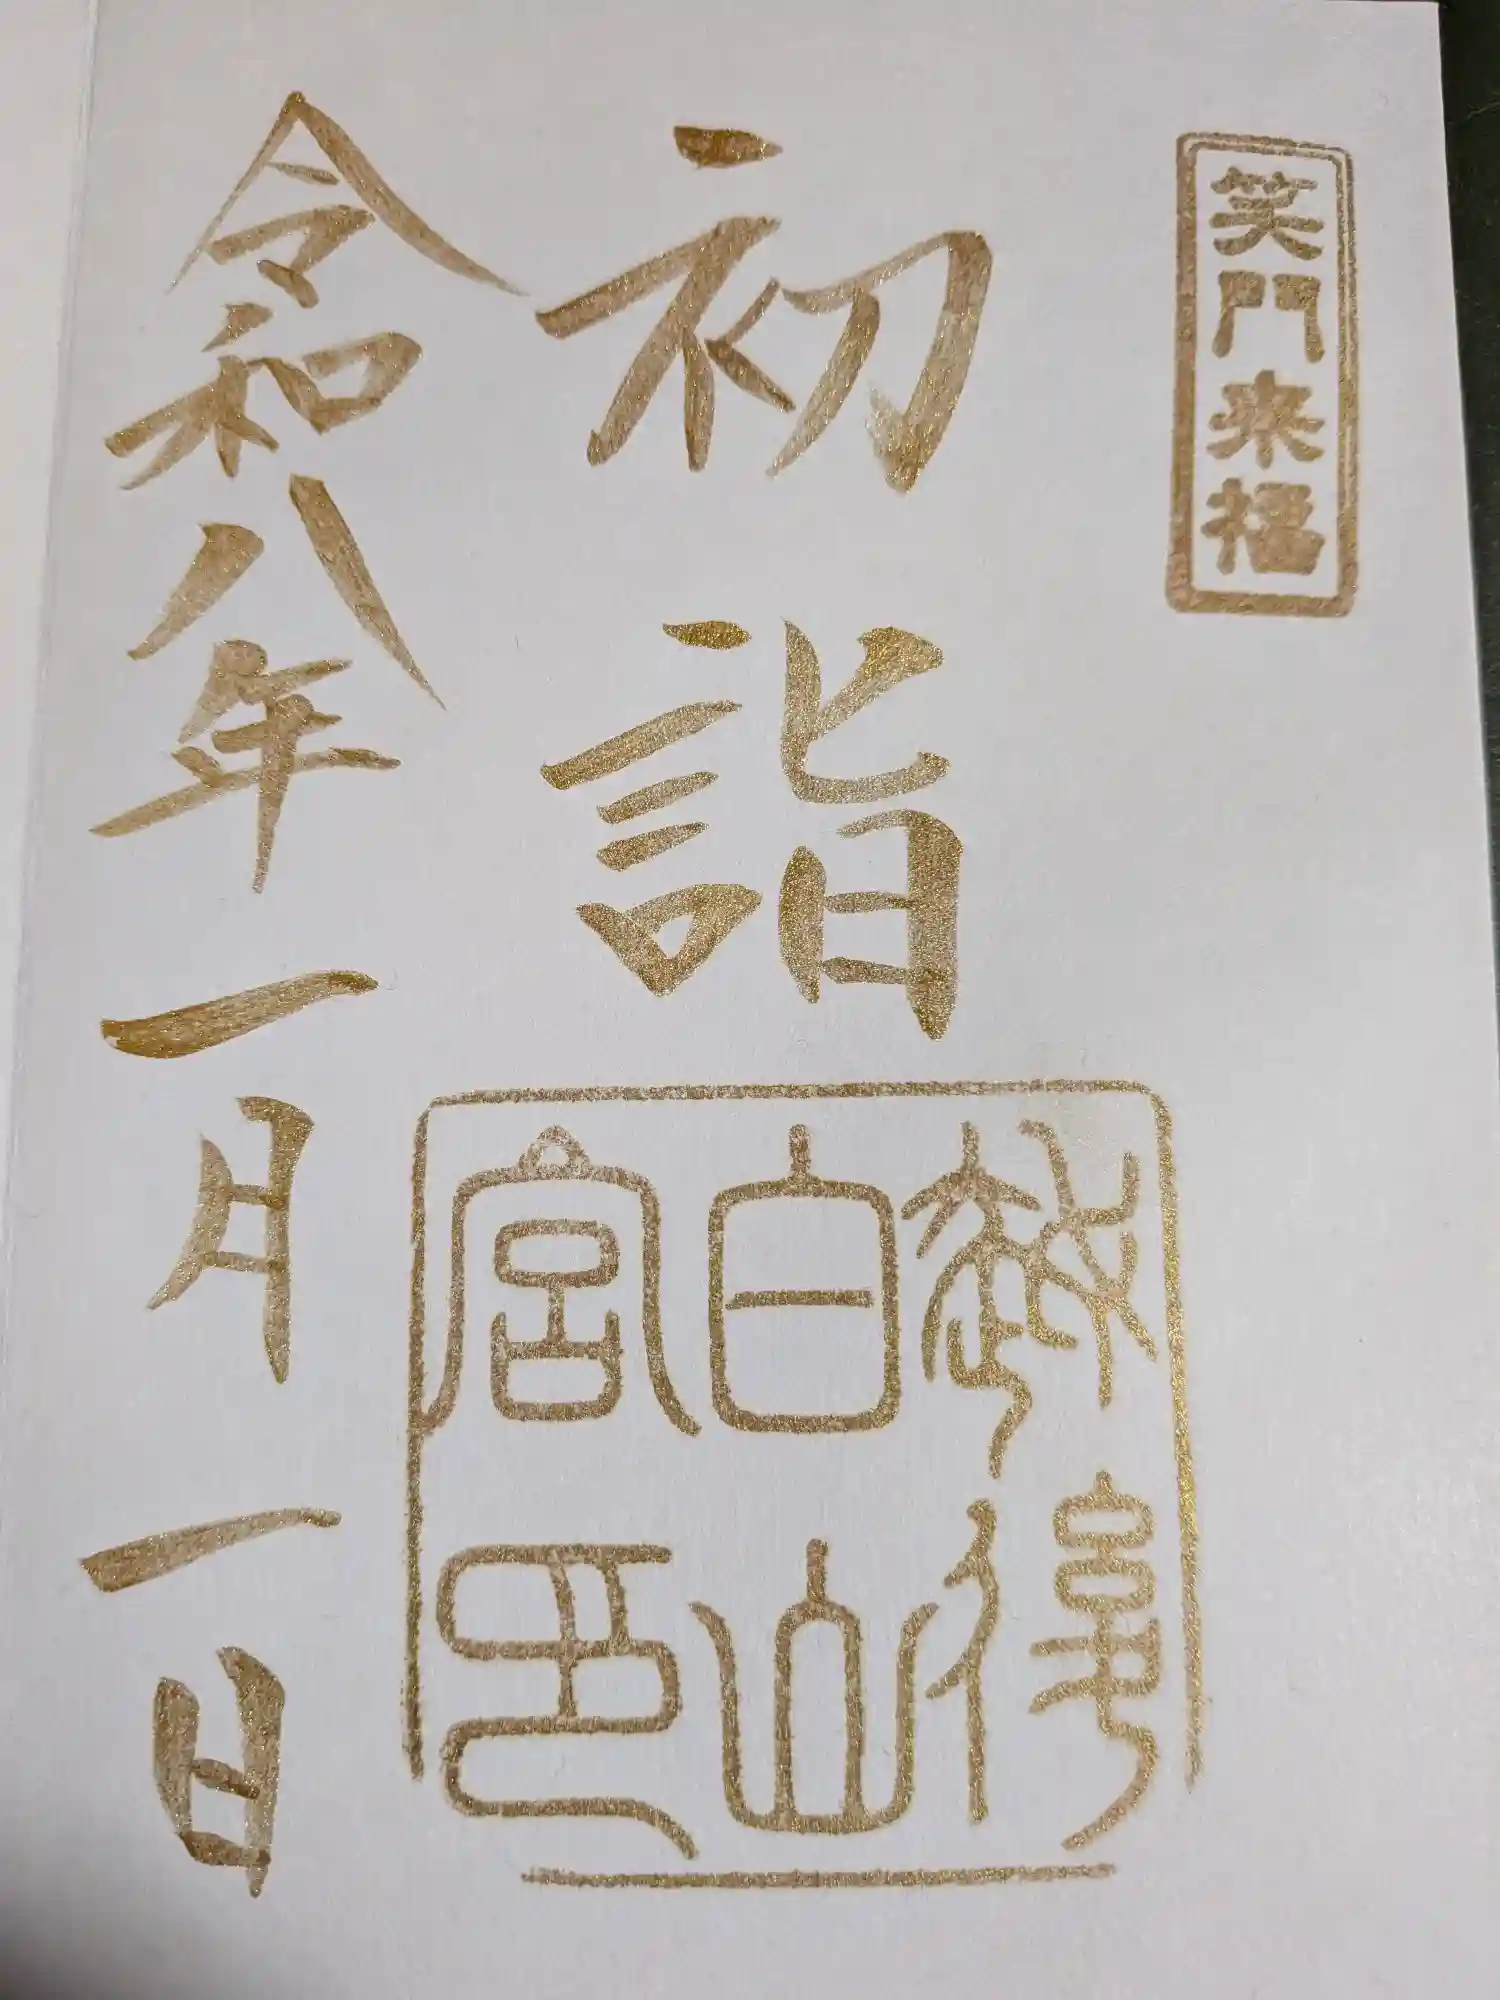 笑門来福
初詣
白山
宮印
令和八年一月一日